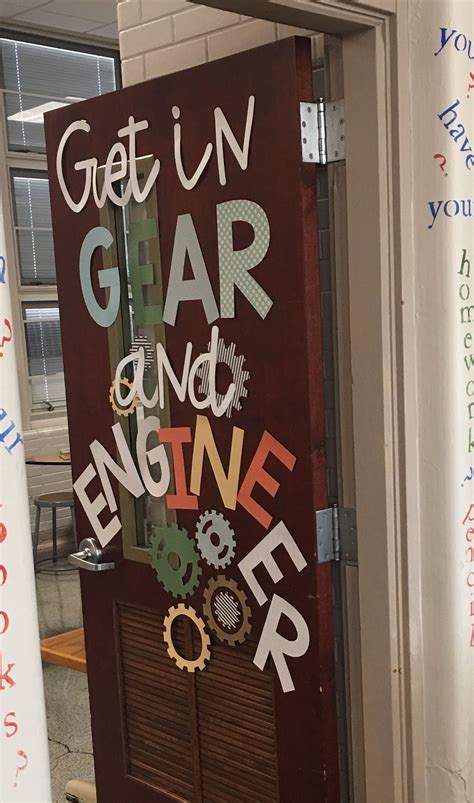 Get in
GEAR
and
ENGINEER
you
?
have
?
your
homework
?
ur
?
books
?